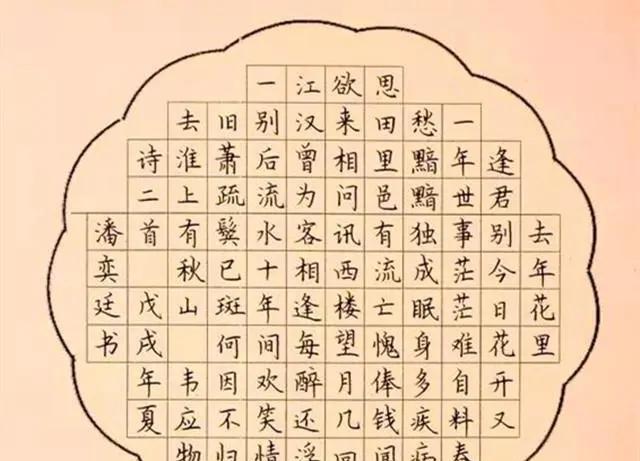 去年花里
逢君别今日花开又
一年世事茫茫难自料春
愁黯黯独成眠身多疾病
思田里邑有流亡愧俸钱闻
欲来相问讯西楼望月几回
江汉曾为客相逢每醉还浮
一别后流水十年间欢笑情
旧萧疏鬓已斑何因不归
去淮上有秋山 韦应物
诗二首 戊戌年夏
潘奕廷书